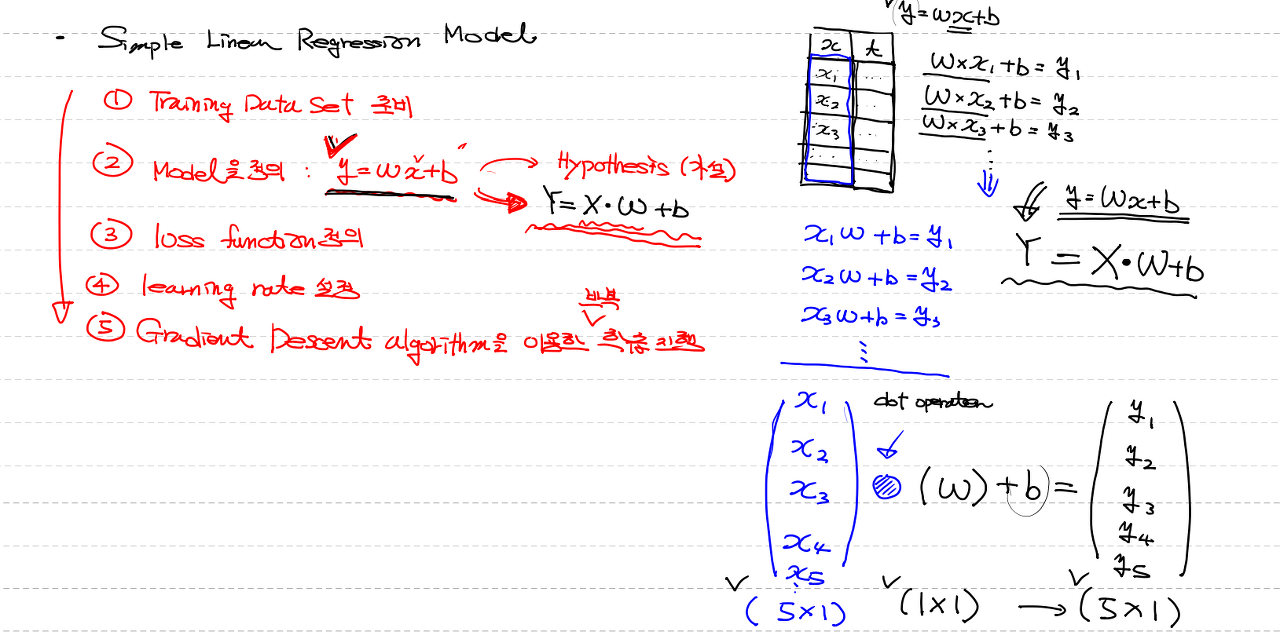 · Simple Linear Regression Model
① Training Data Set 준비
② Model을 정의 : y = wx+b → Hypothesis (가설)
Y = X · W + b
③ loss function 정의
④ learning rate 설정
반복
⑤ Gradient Descent algorithm을 이용한 학습 진행
y = wx+b
x t
x₁ ...
x₂ ...
x₃ ...
... ...
W × x₁ + b = y₁
W × x₂ + b = y₂
W × x₃ + b = y₃
⋮
y = Wx+b
Y = X · W + b
x₁ W + b = y₁
x₂ W + b = y₂
x₃ W + b = y₃
⋮
dot operation
x₁ y₁
x₂ y₂
x₃ (W) + b = y₃
x₄ y₄
x₅ y₅
⋮
(5×1) (1×1) → (5×1)